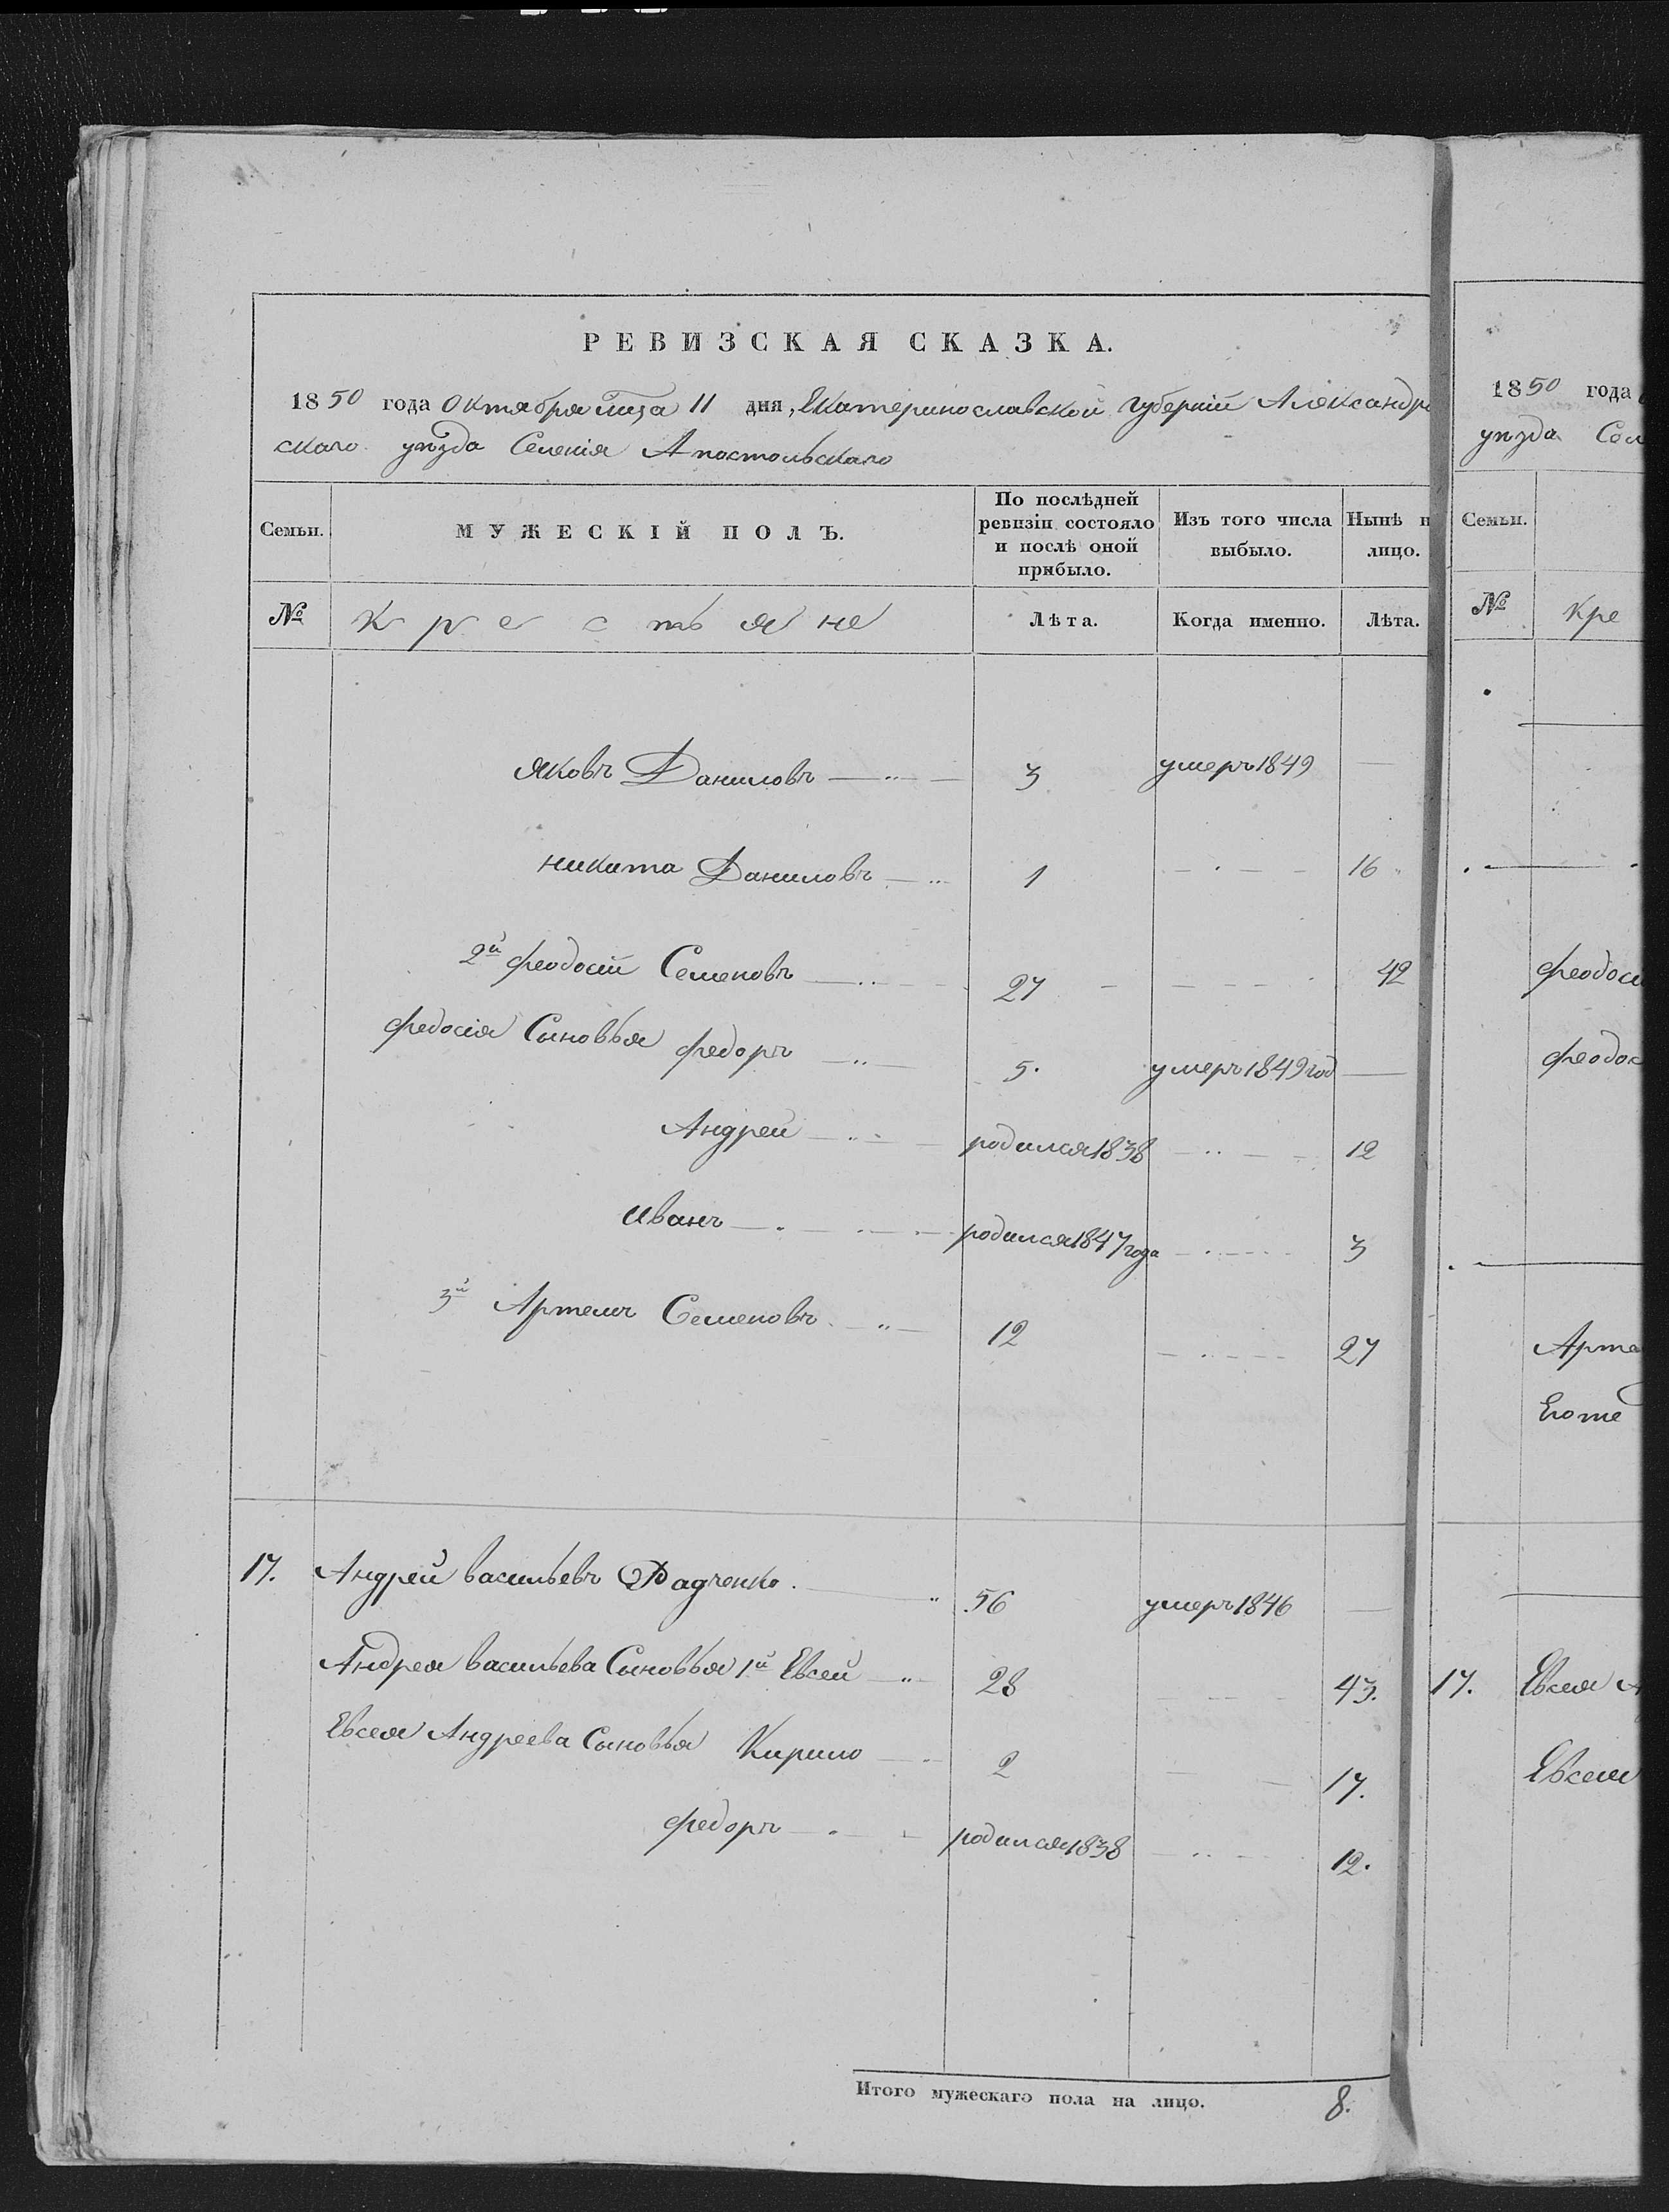 РЕВИЗСКАЯ СКАЗКА.
1850 года Октября мца 11 дня, Екатеринославской губернiи Александро
скаго уѣзда Селенія Апостольскаго
Семьи. МУЖЕСКІЙ ПОЛЪ. По послѣдней ревизіи состояло и послѣ оной прибыло. Изъ того числа выбыло. Нынѣ н лицо.
№ Крестьяне Лѣта. Когда именно. Лѣта.
Яковъ Даниловъ 3 умеръ 1849
Никита Даниловъ 1 16
2й Феодосiй Семеновъ 27 42
Федосiя Сыновья Федоръ 5. умеръ 1849 год
Андрей родился 1838 12
Иванъ родился 1847 года 3
3й Артемъ Семеновъ 12 27
17. Андрей Васильевъ Радченко. 56 умеръ 1846
Андрея Васильева Сыновья 1й Евсей 28 43.
Евсея Андреева Сыновья Кирило 2 17.
Федоръ родился 1838 12.
Итого мужескаго пола на лицо. 8.
1850 года
уѣзда Сел
Семьи.
№ Кре
Феодоси
Феодос
Арте
Его же
17. Евсея А
Евсея